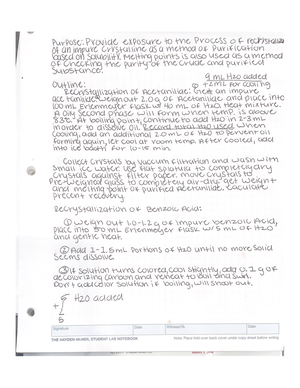 Purpose: Provide exposure to the process of recrystallization
of an impure crystalline as a method of purification
based on solubility. Melting points is also used as a method
of checking the purity of the crude and purified
substance.
9 mL H2O added
Outline: + 2 mL for cooling
Recrystallization of Acetanilide: Get an impure
acetanilide. Weigh out 2.0g of Acetanilide and place into
100 mL Erlenmeyer flask w 40 mL of H2O. Heat mixture.
A oily second phase will form when temp. is above
83°C. At boiling point, continue to add H2O in 2-3 mL
morder to dissolve oil. Record total H2O used. When
cooling, add an additional 2.0 mL of H2O to prevent oil
forming again, let cool at room temp. After cooled, add
to ice bath for 10-15 min.
Collect crystals by vacuum filtration and wash with
small ice water. Use flat spatula to completely dry
crystals against filter paper. Move crystals to
pre-weighed glass to completely air-dry. Get weight
and melting point of purified Acetanilide. Calculate
percent recovery.
Recrystallization of Benzoic Acid:
① Weigh out 1.0-1.2g of impure benzoic Acid,
place into 50 mL Erlenmeyer flask w/ 5 mL of H2O
and gentle heat.
② Add 1-1.5 mL portions of H2O until no more solid
seems dissolve.
③ If solution turns colored, cool slightly, add 0.1g of
decolorizing carbon and reheat to boil and swirl.
Don't add before solution if boiling, will shoot out.
H2O added
+
5
Signature Date Witness/TA Date
THE HAYDEN-McNEIL STUDENT LAB NOTEBOOK Note: Place fold-over back cover under copy sheet before writing